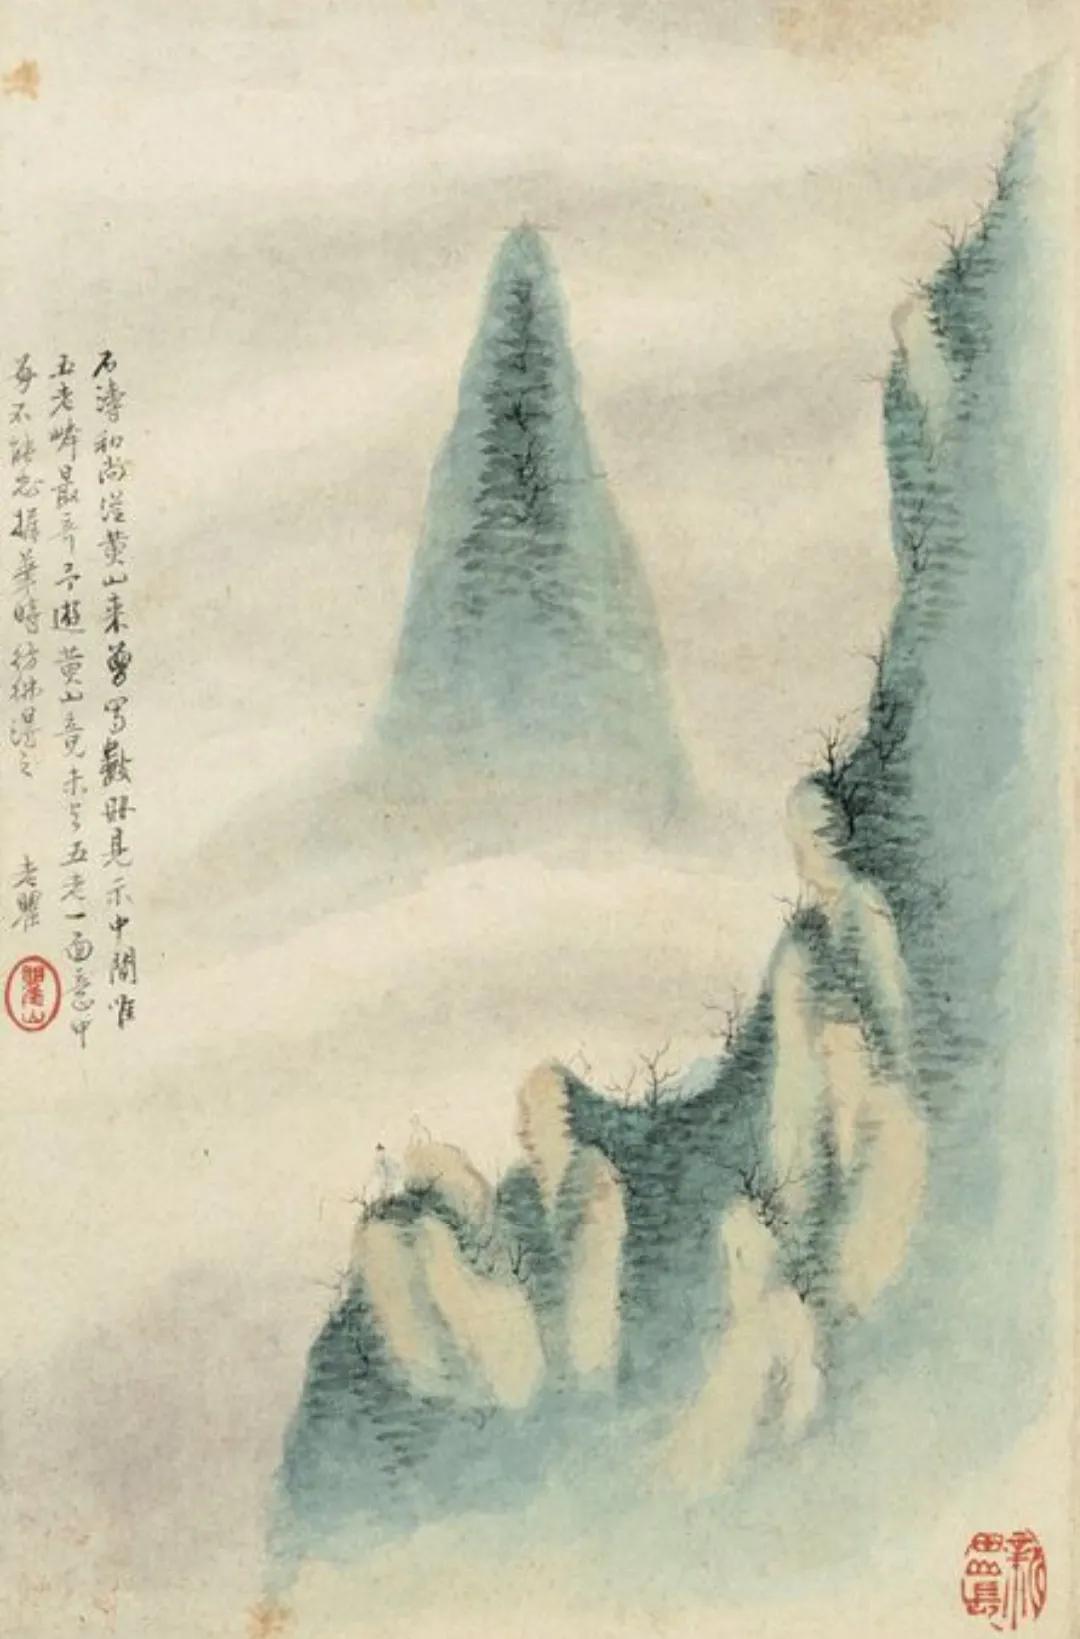 石濤和尚從黃山來曾寫數冊見示中間唯
五老峰最奇予遊黃山竟未与五老一面意中
每不能忘握筆時彷彿得之 老瞿
瞿山